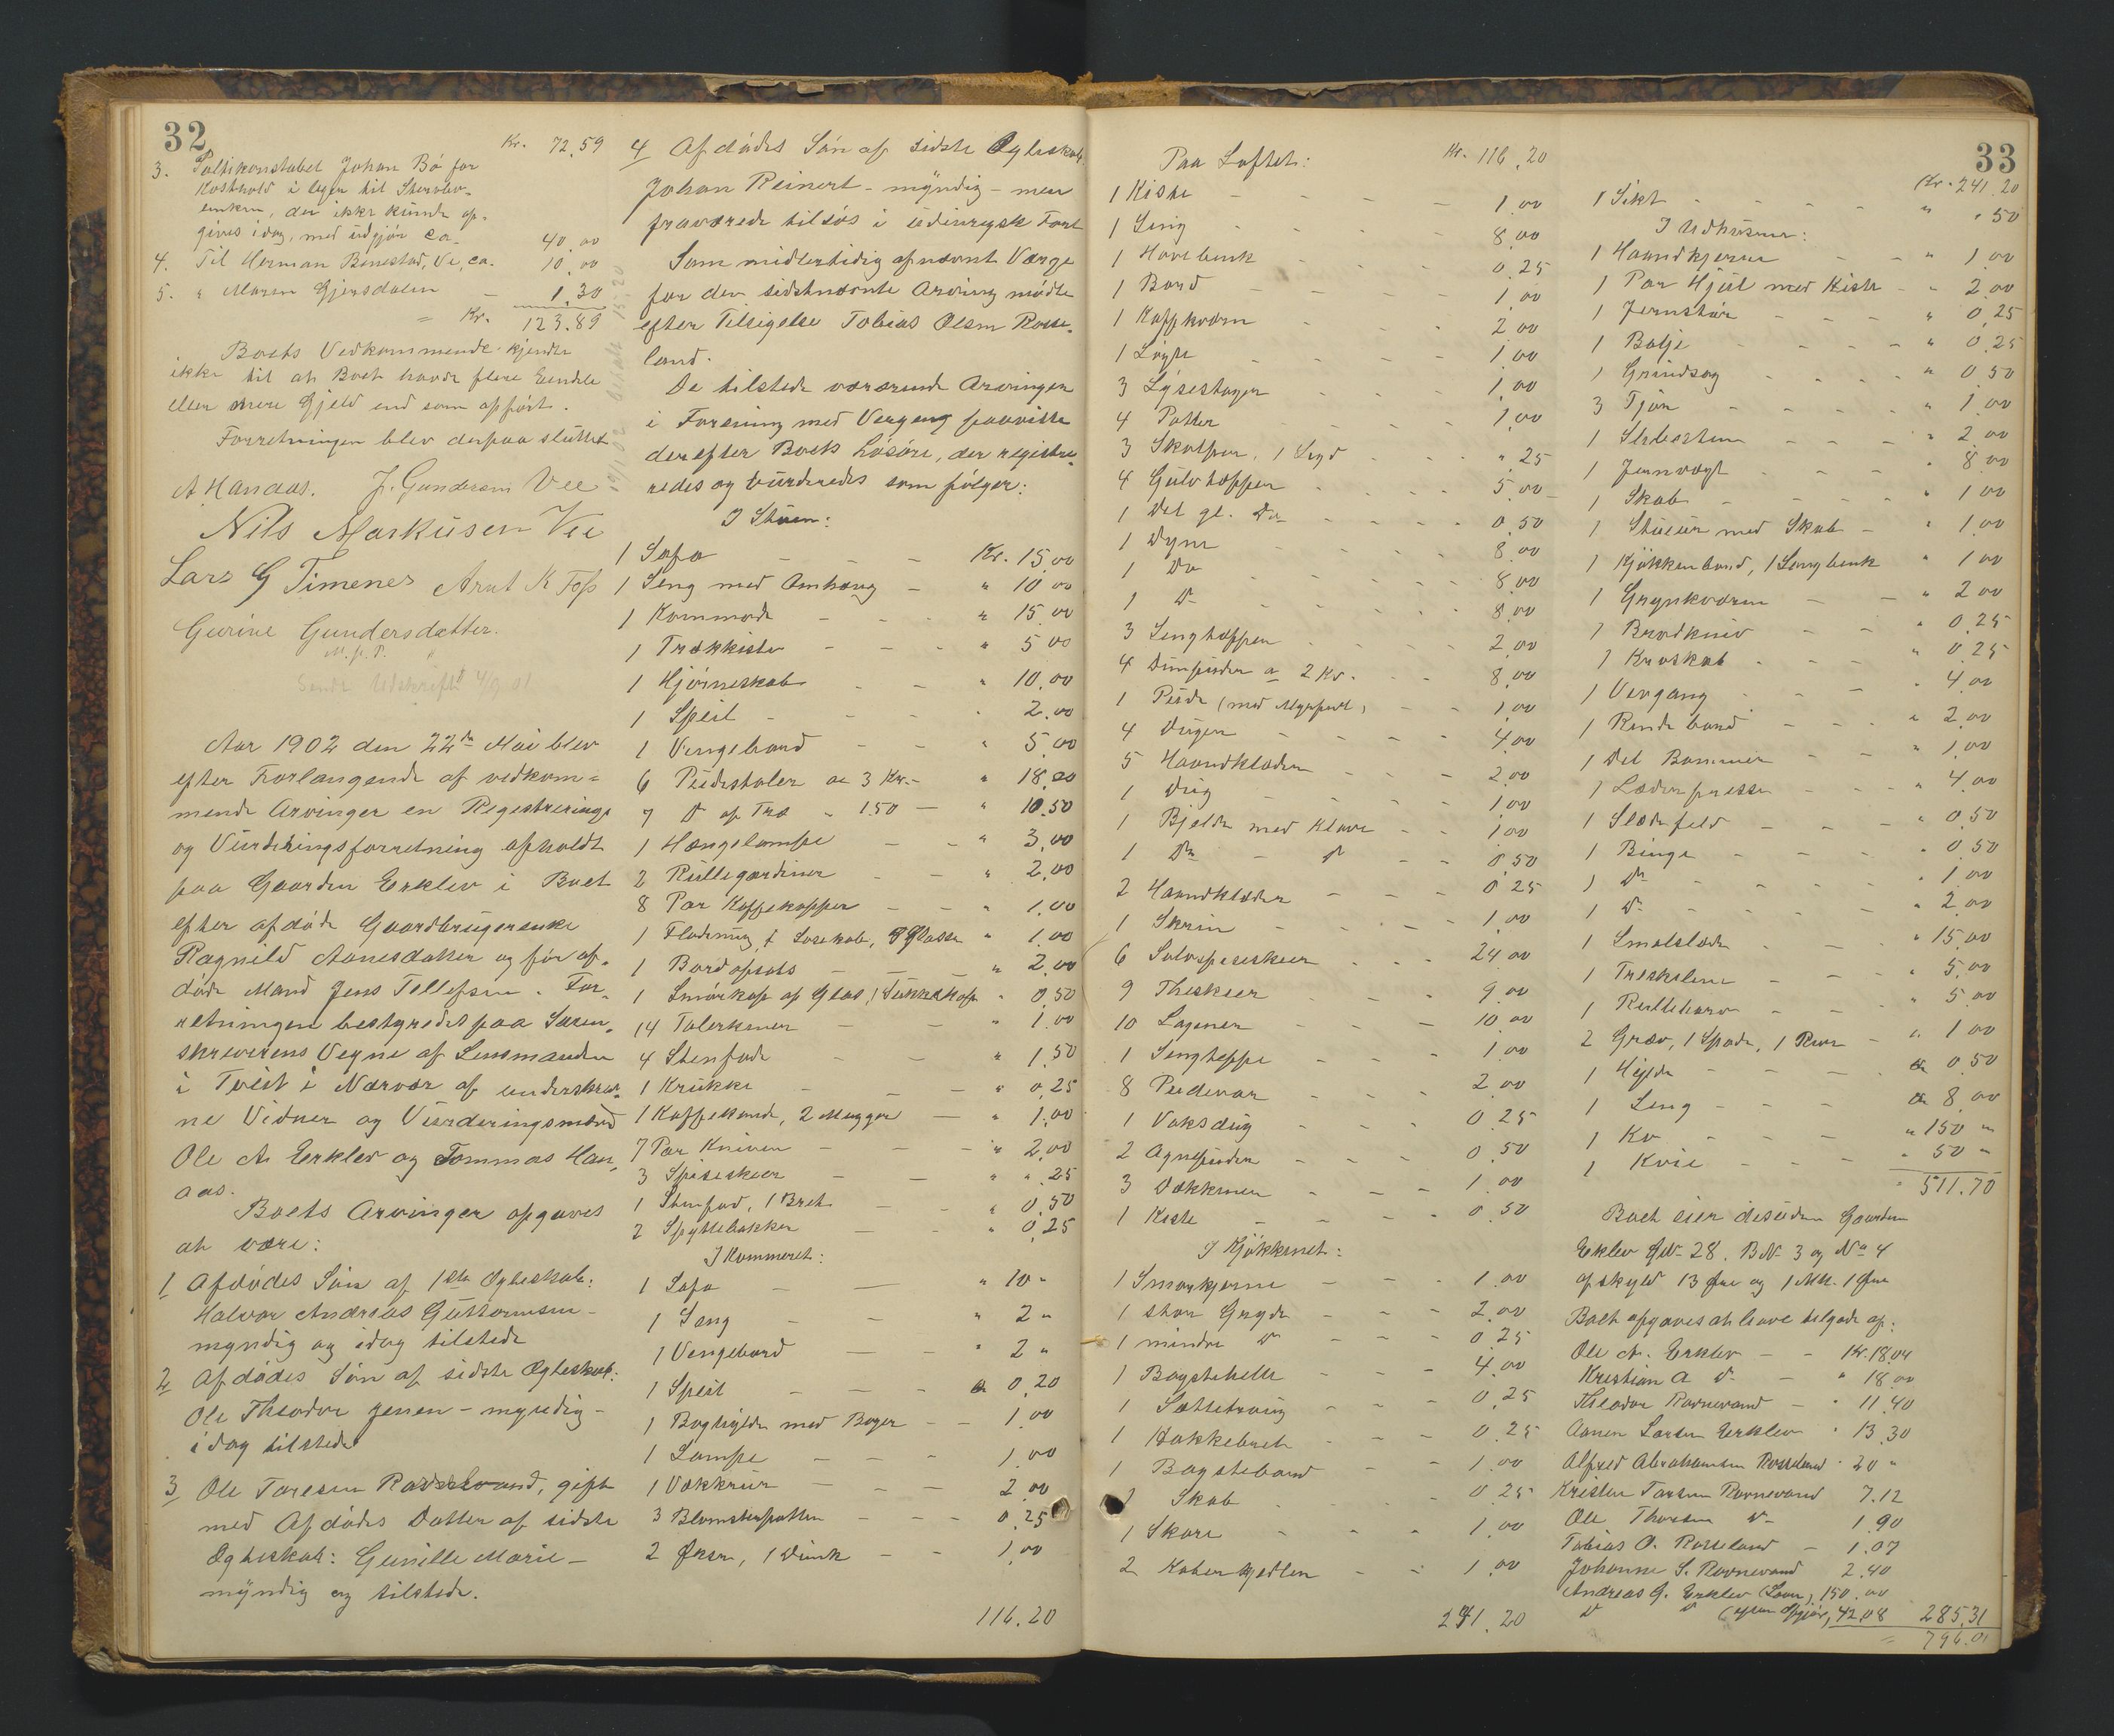 32
Kr. 72.59
3. Politikonstabel Johan Bö for
Kosthold i leger til
, der ikke kunde op-
gives idag, med udgjør ca. 40.00
4. Til Herman Benestad, Ve, ca. 10.00
5. " Maren Gjersdalen — 1.30
= Kr. 123.89
Boets Vedkommende kjendte
ikke til at Boet havde flere Eiendele
eller mere Gjeld end som opført.
Forretningen blev derpaa sluttet
A Hanaas. J. Gundersen Vee
Nils Markusen Vee
Lars G Timenes Arnt K Foss
Gurine Gundersdatter.
M. p. P.
Sendt Udskrift 4/9 01
Aar 1902 den 22de Mai blev
efter Forlangende af vedkom-
mende Arvinger en Registrerings
og Vurderingsforretning afholdt
paa Gaarden Erklev i Boet
efter afdøde Gaardbrugerenke
Ragnild Aanesdatter og før af-
døde Mand Jens Tellefsen. For-
retningen bestyredes paa Soren-
skreverens Vegne af Lensmanden
i Tveit i Nærvær af underskrev-
ne Vidner og Vurderingsmænd
Ole A. Erklev og Tommas Han-
aas.
Boets Arvinger opgaves
at være:
1 Afdødes Søn af 1ste Ægteskab:
Halvor Andreas Guttormsen -
myndig og idag tilstede
2 Afdødes Søn af sidste Ægteskab:
Ole Theodor Jensen - myndig -
idag tilstede
3 Ole Taresen Ravnevand, gift
med Afdødes Datter af sidste
Ægteskab: Gunille Marie -
myndig og tilstede.
4 Afdødes Søn af sidste Ægteskab.
Johan Reinert - myndig - men
fraværende tilsøs i udenrigsk Fart
Som midlertidig opnævnt Værge
for den sidstnævnte Arving mødte
efter Tilsigelse Tobias Olsen Rosse-
land.
De tilstede værende Arvinger
i Forening med Vergen paaviste
derefter Boets Løsøre, der registre-
redes og vurderedes som følger:
I Stuen:
1 Sofa — — Kr. 15.00
1 Seng med Omhæng — " 10 00
1 Kommode - - " 15.00
1 Trækkiste - - - " 5 00
1 Hjørneskab - - " 10.00
1 Speil - - - 2.00
1 Vengebord - - " 5.00
6 Pidestoler a 3 Kr. - " 18.00
7 D af Træ " 1.50 — " 10.50
1 Hængelampe - - " 3.00
2 Rullegardiner - - " 2.00
8 Par Kaffekopper - - " 1.00
1 Flødemug, 1 , Glasse " 1.00
1 Bordopsats — — " 2.00
1 Smørkop af Glas, 1 " 0.50
14 Talerkener — — " 1.00
4 Stenfade — — " 1.50
1 Krukke — — " 0.25
1 Kaffekande, 2 Mugger — " 1.00
7 Par Kniver — — " 2.00
3 Spiseskeer — — " ".25
1 Stenfad, 1 Bret — " 0.50
2 Spyttebakker — " 0.25
I Kammeret:
1 Sofa — — " 10 "
1 Seng — — " 2 "
1 Vengebord — — " 2 "
1 Speil — — — 0.20
1 Boghylde med Bøger — — 1.00
1 Lampe — — — 1.00
1 Vækkeur — — — 2.00
3 Blomsterpotter — — — 0.25
2 Økser, 1 Dunk — — 1.00
116.20
Paa Loftet: Kr. 116.20
1 Kiste - - - - 1.00
1 Seng - - - - 8.00
1 Hovebenk - - - - 0.25
1 Bord - - - - 1.00
1 Kaffkværn - - - - 2 00
1 Løgte - - - - 1.00
3 Lysestager - - - - 1.00
4 Potter - - - - 1.00
3 , 1 - - - " 25
4 Gulvtæpper - - - - 5.00
1 Del gl. Do - - - - 0.50
1 Dyne - - - - 8.00
1 Do - - - - 8.00
1 D - - - - 8.00
3 Sengtæpper - - - - 2.00
4 Dunpuder a 2 Kr. - - 8.00
1 Pude (med ) - - 1.00
4 Duger - - - - 4.00
5 Haandklæder - - - 2.00
1 Dug - - - - 1.00
1 Bjelde med Klave - - 1.00
1 Do - D - - 0.50
2 Haandklæder - - - 0.25
1 Skrin - - - - 1.00
6 Sølvspiseskeer - - - 24.00
9 Theskeer - - - 9.00
10 Lagener - - - - 10.00
1 Sengteppe - - - - 1.00
8 Pudevar - - - - 2.00
1 Voksdug - - - - 0.25
2 Agnepuder - - - 0.50
3 Dækkener - - - - 1.00
1 Kiste - - - - 0.50
I Kjøkkenet:
1 Smørkjerne - - - 1.00
1 stor Gryde - - - 2.00
1 mindre D - - - 0.25
1 Bagstehelle - - - 4.00
1 Sættetraug - - - 0.25
1 Hakkebret - - - 0.25
1 Bagstebord - - 1.00
1 Skab - - - - 0.25
1 Skore - - - - 1.00
2 Kobberkjedler - - - 1.00
241.20
33
Kr. 241.20
1 Sikt - - - - " " 50
I Udhusene:
1 Haandkjerre - - " 1.00
1 Par Hjul med Kiste - " 2.00
1 Jernstør - - - " 0.25
1 Balje - - - - " 0.25
1 Grindsag - - - - " 0.50
3 Tjør - - - - " 1.00
1 Slibesten - - - " 2.00
1 Jernvægt - - - " 8.00
1 Skab - - - - " 1.00
1 Stueur med Skab - " 1.00
1 Kjøkkenbord, 1 Sengbenk " 1.00
1 Grynkværn — — " 2.00
1 Brødkniv - - " 0.25
1 Kroskab - - - " 0.25
1 Vevgang - - - " 4.00
1 Rendeband - - - " 2.00
1 Del Bommer - - " 1.00
1 Læderpresse - - - " 4.00
1 Slædefeld - - - " 0.50
1 Binge - - - - " 0.50
1 D - - - - " 1.00
1 D - - - - " 2.00
1 Smalslæde - - " 15.00
1 Treskelem - - " 5.00
1 Rulleharv - - " 5.00
2 Græv, 1 Spade, 1 Rive - " 1.00
1 Hylde - - - - 0.50
1 Seng - - - 8.00
1 Ko - - - " 150 "
1 Kvie - - - " 50 "
" 511.70
Boet eier desuden Gaarden
Erklev GNo 28. BNo 3 og No 4
af skyld 13 Øre og 1 Mk. 1 Øre
Boet opgaves at have tilgode af:
Ole A. Erklev - - Kr. 18.04
Kristian A D - - " 18.00
Theodor Ravnevand - " 11.40
Aanen Larsen Erklev " 13.30
Alfred Abrahamsen Rosseland " 20 "
Kristen Tarsen Ravnevand 7.12
Ole Thorsen D- 1.90
Tobias O. Rosseland - 1.07
Johanne S. Ravnevand 2.40
Andreas G. Erklev (Laan), 150.00
D D , 42.08 285.31
= 796.01